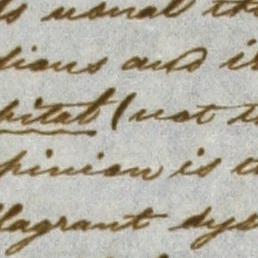 ls usual th
tions and i
pital (not t
pinion is t
flagrant dys